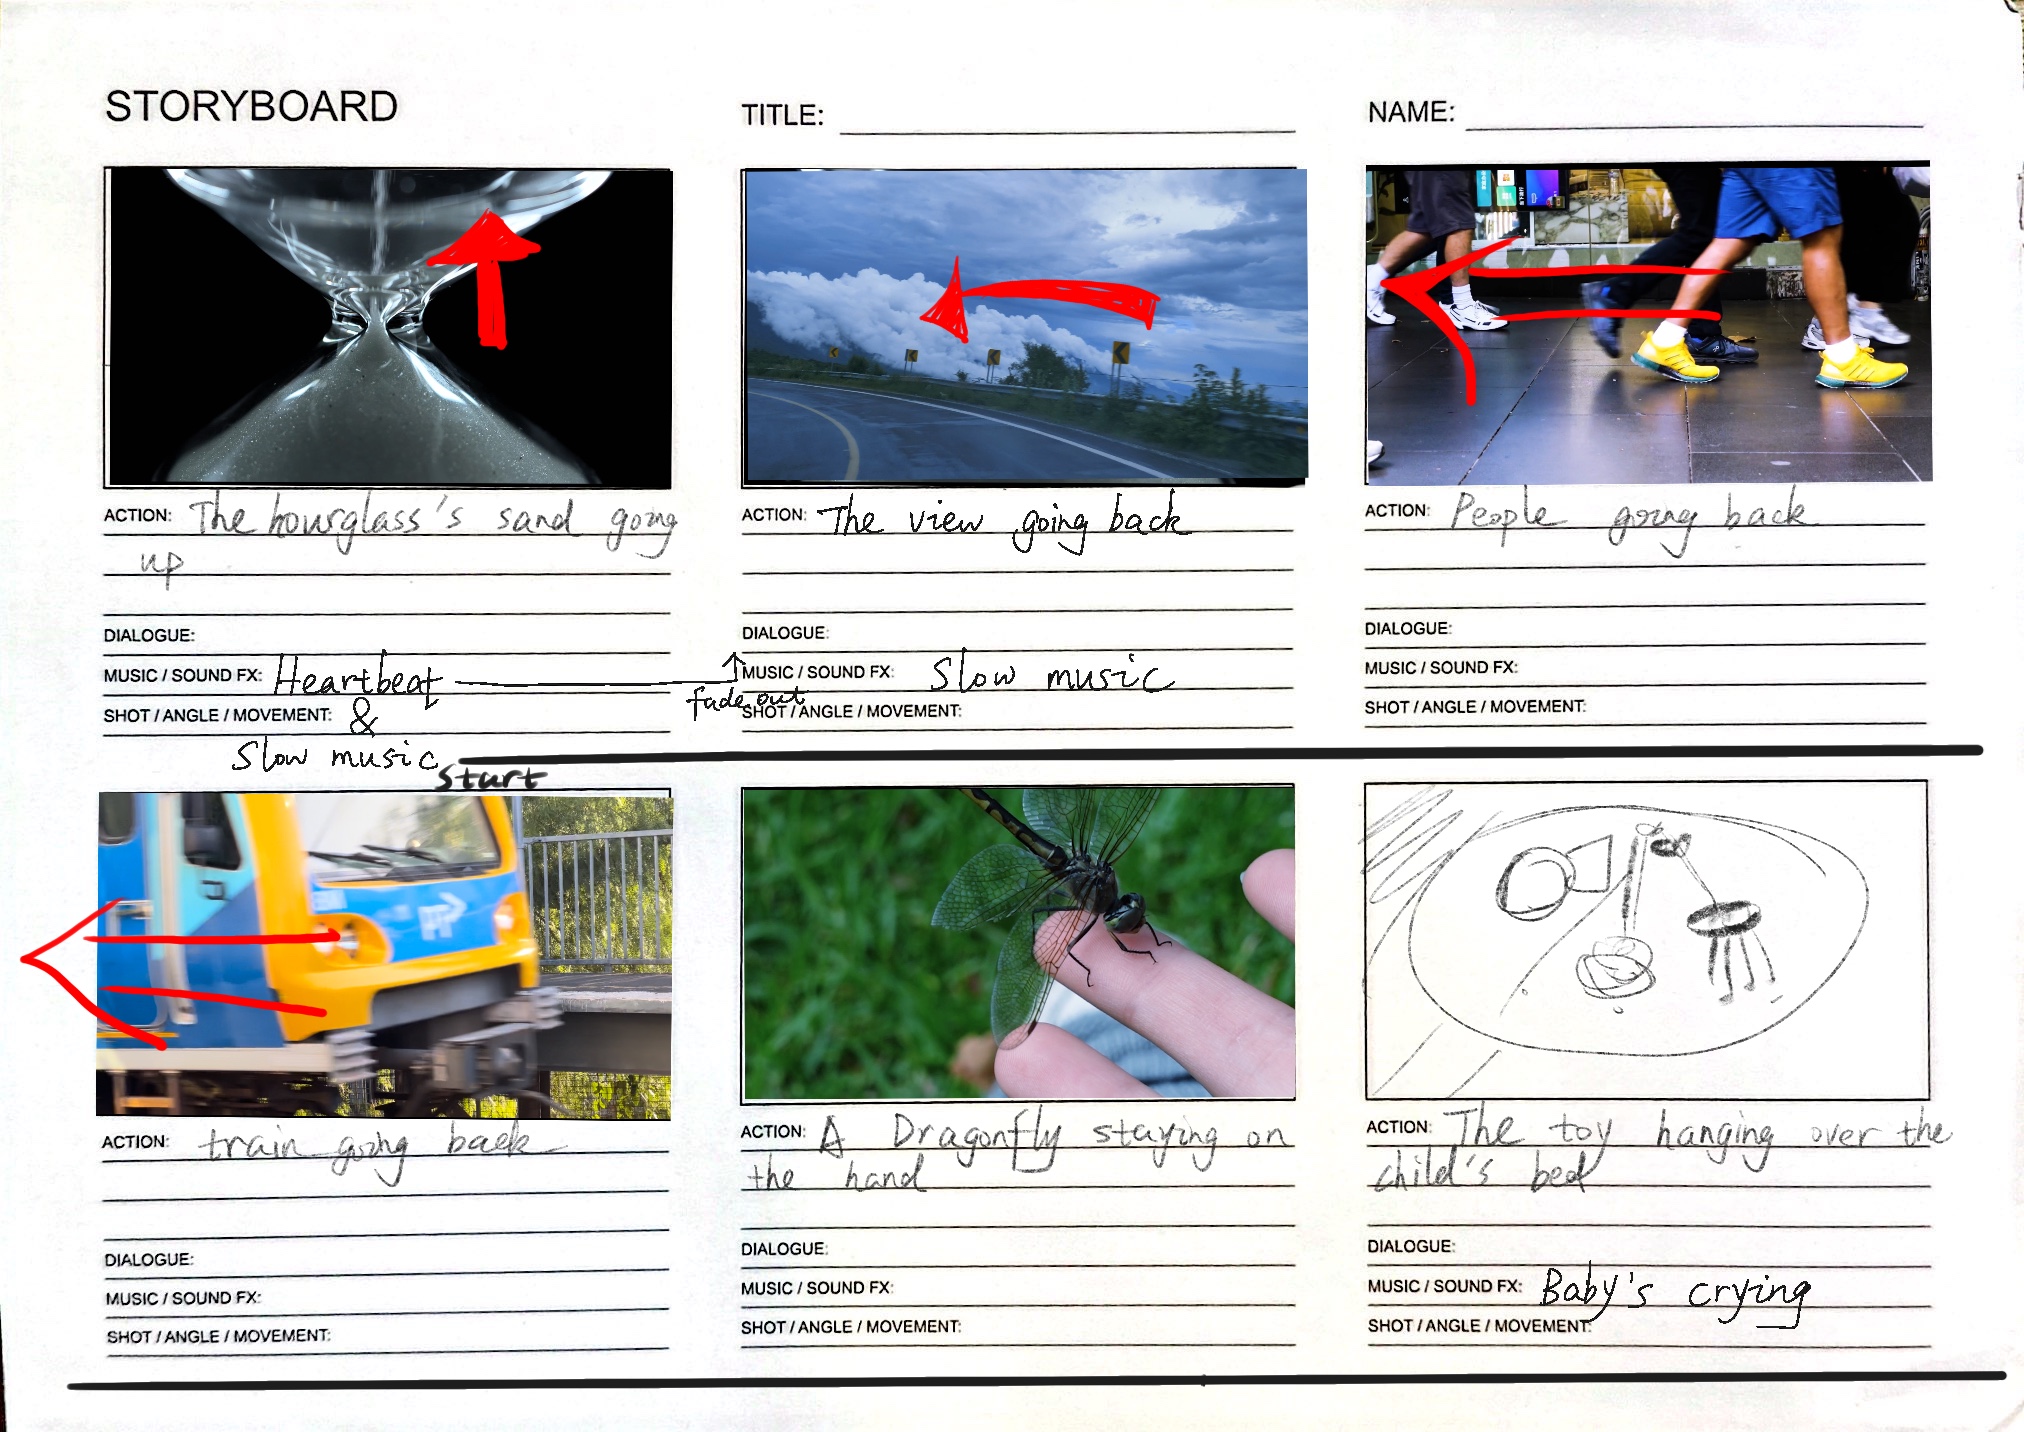 STORYBOARD
TITLE:
NAME:
ACTION: The hourglass's sand going
up
DIALOGUE:
MUSIC / SOUND FX: Heartbeat
SHOT / ANGLE / MOVEMENT: &
Slow music
start
ACTION: The view going back
DIALOGUE:
MUSIC / SOUND FX: Slow music
fade out
SHOT / ANGLE / MOVEMENT:
ACTION: People going back
DIALOGUE:
MUSIC / SOUND FX:
SHOT / ANGLE / MOVEMENT:
ACTION: train going back
DIALOGUE:
MUSIC / SOUND FX:
SHOT / ANGLE / MOVEMENT:
ACTION: A Dragonfly staying on
the hand
DIALOGUE:
MUSIC / SOUND FX:
SHOT / ANGLE / MOVEMENT:
ACTION: The toy hanging over the
child's bed
DIALOGUE:
MUSIC / SOUND FX: Baby's crying
SHOT / ANGLE / MOVEMENT: